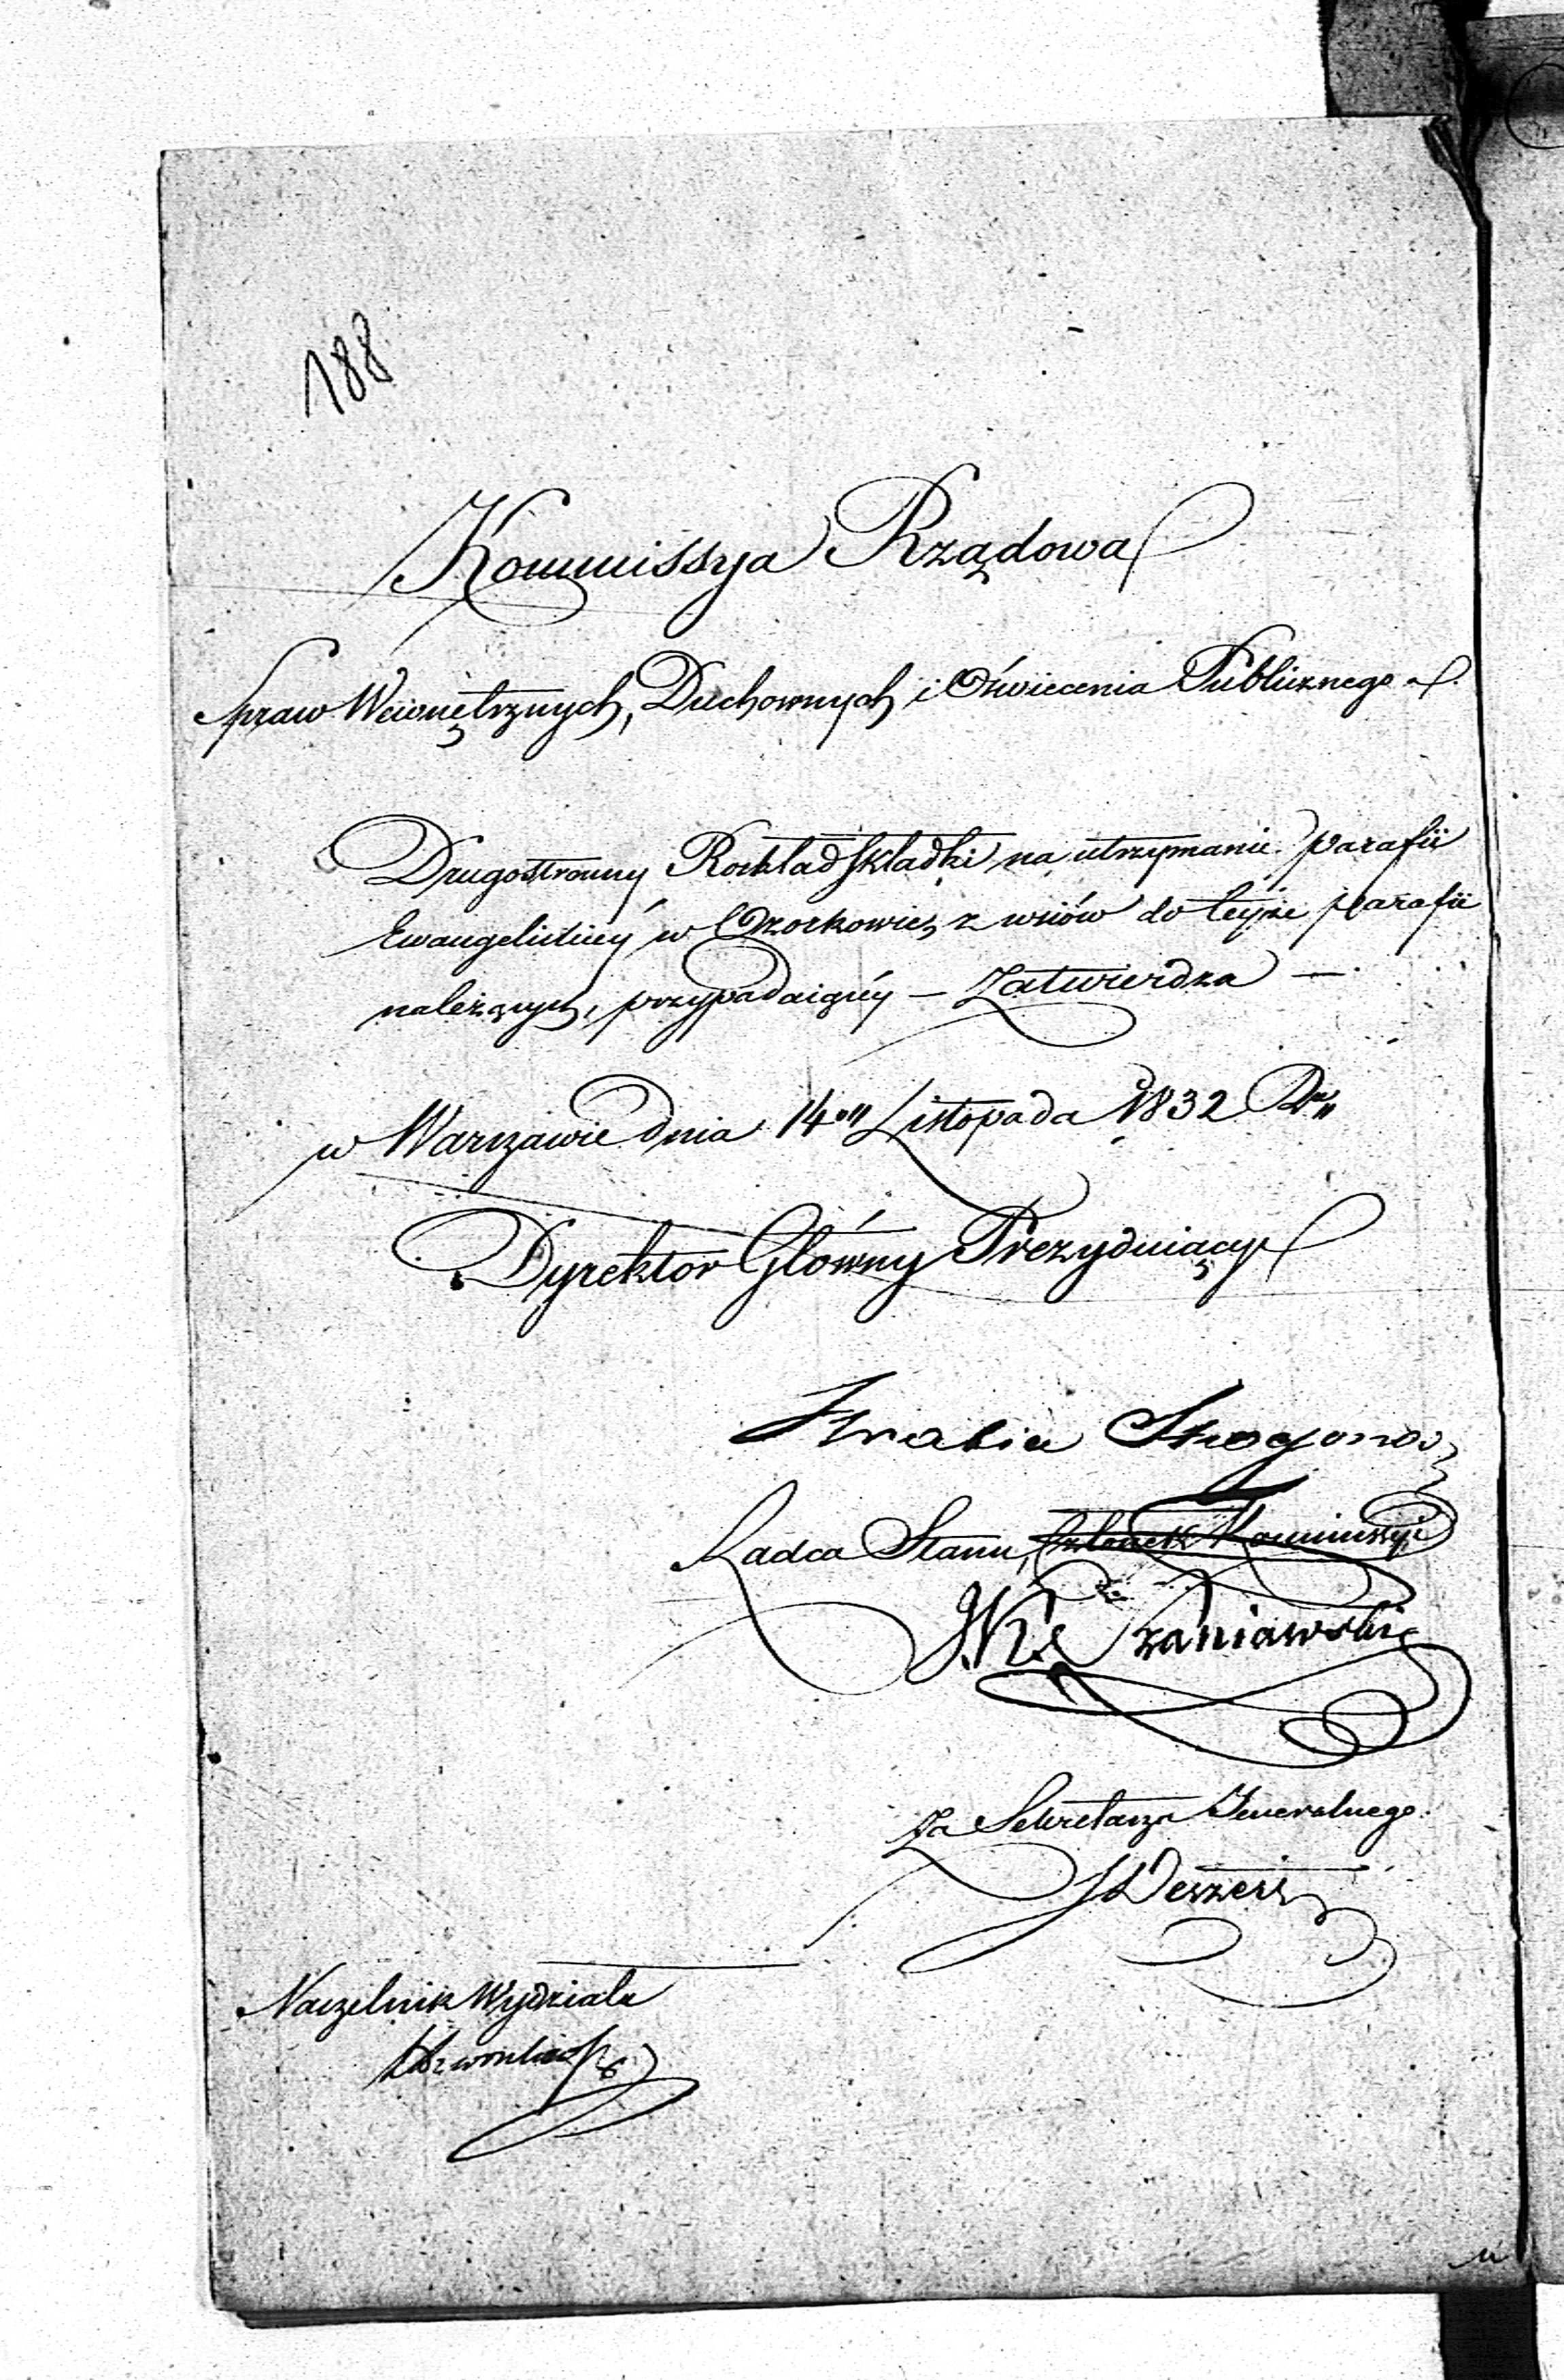 188
Kommissya Rządowa
Spraw Wewnętrznych, Duchownych i Oświecenia Publicznego
Drugostronny Rozkład składki na utrzymanie parafii
Ewangelickiéy w Ozorkowie, z wsiów do teyże parafii
należących, przypadaiącéy – Zatwierdza –
w Warszawie dnia 14 Listopada 1832 R.
Dyrektor Główny Prezyduiący
Hrabia Strogonow
Radca Stanu, Członek Kommissyi
J.K. Szaniawski
Za Sekretarza Generalnego
Naczelnik Wydziału